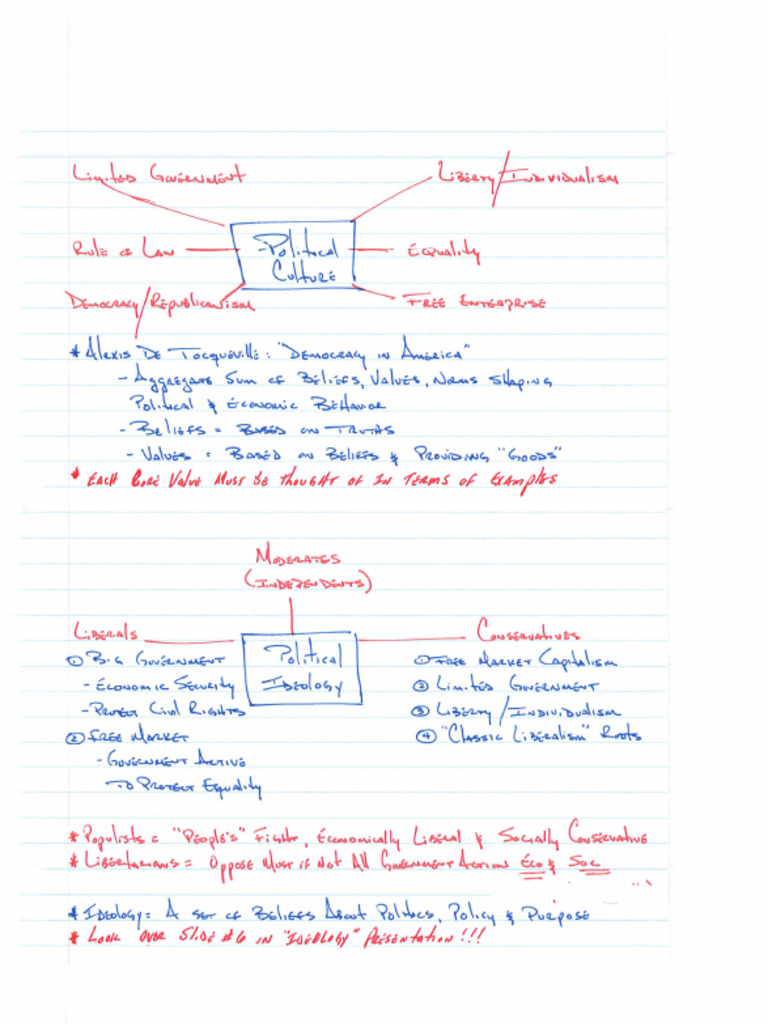 Limited Government
Liberty/Individualism
Rule of Law
-Political
Culture
Equality
Democracy/Republicanism
Free Enterprise
* Alexis De Tocqueville: "Democracy in America"
- Aggregate Sum of Beliefs, Values, Norms Shaping
Political & Economic Behavior
- Beliefs = Based on Truths
- Values = Based on Beliefs & Providing "Goods"
* Each Core Value Must Be Thought of In Terms of Examples
Moderates
(Independents)
Liberals
Political
Ideology
Conservatives
① Big Government
① Free Market Capitalism
- Economic Security
② Limited Government
- Protect Civil Rights
③ Liberty/Individualism
② Free Market
④ "Classic Liberalism" Roots
- Government Active
To Protect Equality
* Populists = "People's" Fight, Economically Liberal & Socially Conservative
* Libertarians = Oppose Most if Not All Government Action Eco & Soc
* Ideology = A set of Beliefs About Politics, Policy & Purpose
* Look Over Slide #6 in "Ideology" Presentation!!!